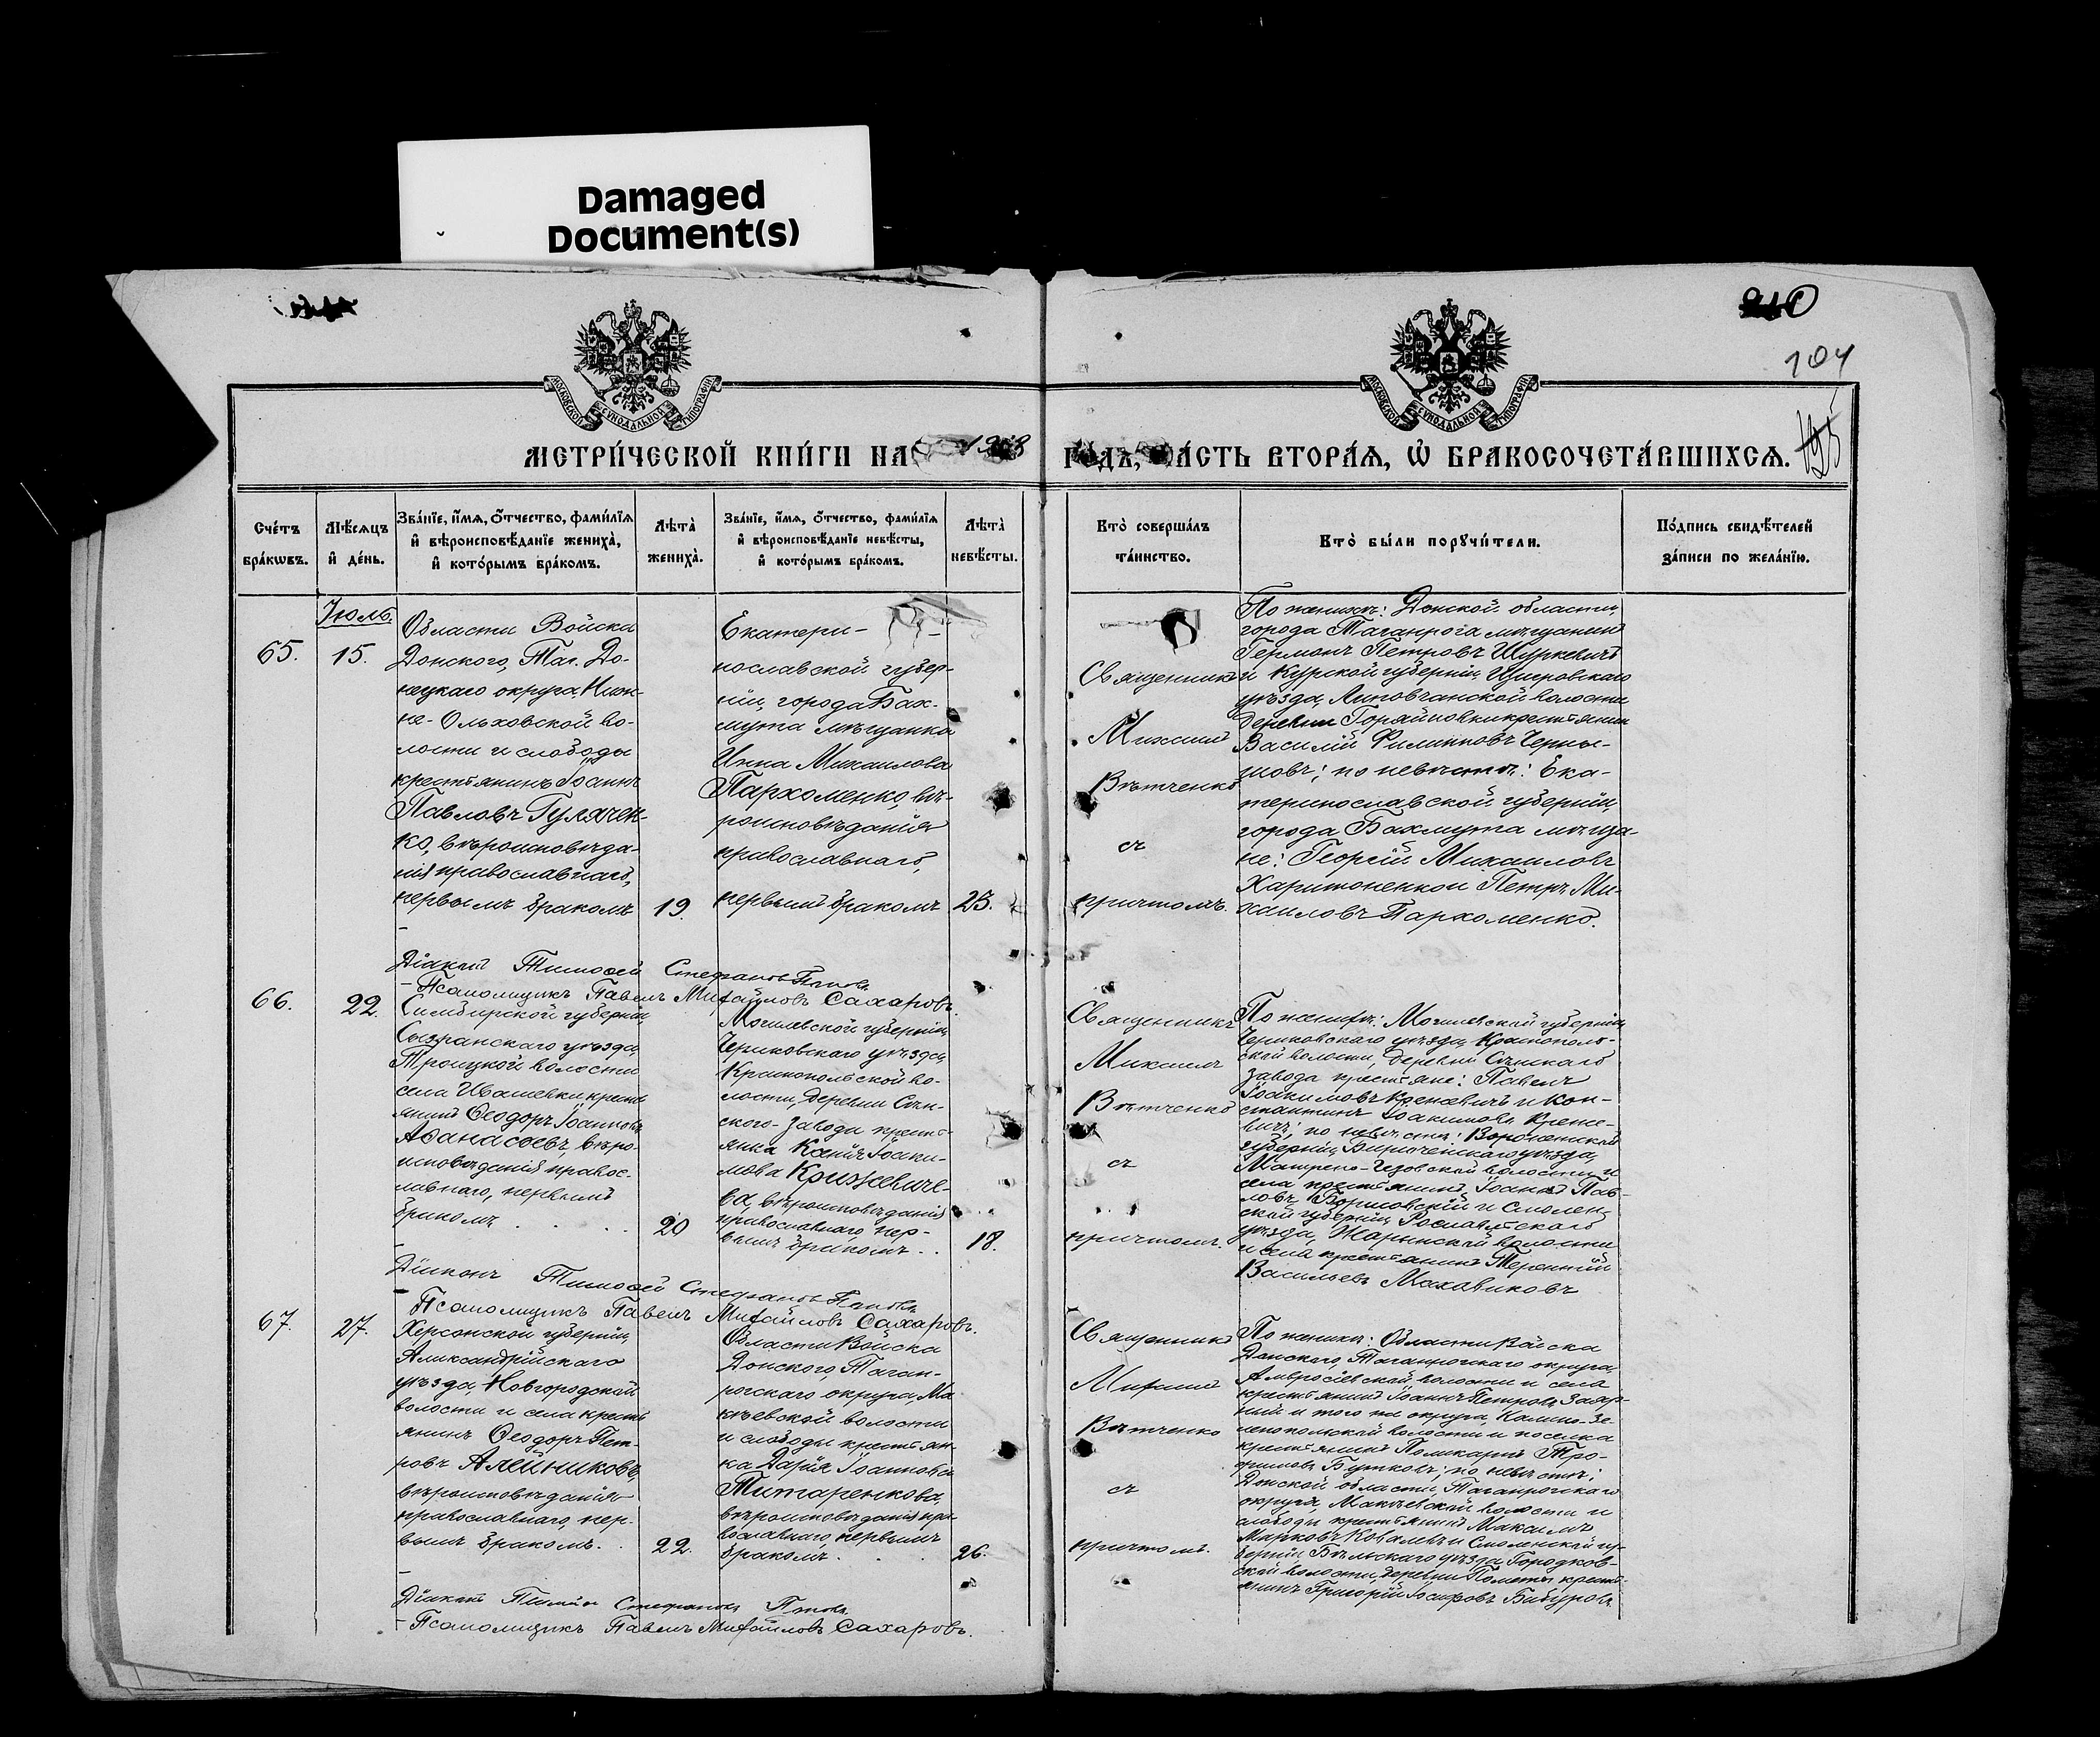 Damaged
Document(s)
210
104
МОСКОВСКОЙ СѴНОДАЛЬНОЙ ТИПОГРАФІИ
МОСКОВСКОЙ СѴНОДАЛЬНОЙ ТИПОГРАФІИ
МЕТРИ́ЧЕСКОЙ КНИ́ГИ НА 1908 ГОДЪ, ЧА́СТЬ ВТОРА́Я, Ѡ БРАКОСОЧЕТА́ВШИХСЯ.
Сче́тъ
бра́кѡвъ.
Мѣ́сяцъ
и҆ де́нь.
Зва́нїе, и҆́мя, ѻ҆́тчество, фами́лїя
и҆ вѣроисповѣ́данїе жениха̀,
и҆ кото́рымъ бра́комъ.
Лѣта̀
жениха̀.
Зва́нїе, и҆́мя, ѻ҆́тчество, фами́лїя
и҆ вѣроисповѣ́данїе невѣ́сты,
и҆ кото́рымъ бра́комъ.
Лѣта̀
невѣ́сты.
Кто̀ соверша́лъ
та́инство.
Кто̀ бы́ли порꙋчи́тели.
По́дпись свидѣ́телей
за́писи по жела́нїю.
Іюль.
65.
15.
Области Войска
Донского, Таг. До-
нецкаго округа Ниж-
не-Ольховской во-
лости и слободы
крестьянинъ Іоаннъ
Павловъ Гулячен-
ко, вѣроисповѣда-
нія православнаго,
первымъ бракомъ
19.
Екатери-
нославской губер-
ніи, города Бах-
мута мѣщанка
Инна Михаилова
Пархоменко, вѣ-
роисповѣданія
православнаго,
первымъ бракомъ
25.
Священникъ
Михаилъ
Вѣтченко
съ
причтомъ.
По женихѣ: Донской области,
города Таганрога мѣщанинъ
Германъ Петровъ Шуркевичъ
и Курской губерніи, Щигровскаго
уѣзда, Липовчанской волости
деревни Горяйновки крестьянинъ
Василій Филипповъ Черны-
шовъ; по невѣстѣ: Ека-
теринославской губерніи,
города Бахмута мѣща-
не: Георгій Михаиловъ
Харитоненко и Петръ Ми-
хаиловъ Пархоменко.
Діаконъ Тимоѳей Стефановъ Поповъ
Псаломщикъ Павелъ Михайловъ Сахаровъ.
66.
22.
Симбирской губерніи,
Сызранскаго уѣзда,
Троицкой волости
села Ивашевки кресть-
янинъ Ѳеодоръ Іоанновъ
Аѳанасьевъ, вѣро-
исповѣданія правос-
лавнаго, первымъ
бракомъ
20
Могилевской губерніи,
Чериковскаго уѣзда,
Краснопольской во-
лости, деревни Сѣн-
ского-завода кресть-
янка Ксенія Іоаки-
мова Крижевиче-
ва, вѣроисповѣданія
православнаго, пер-
вымъ бракомъ
18.
Священникъ
Михаилъ
Вѣтченко
съ
причтомъ.
По женихѣ: Могилевской губерніи,
Чериковскаго уѣзда, Краснополь-
ской волости, деревни Сѣнскаго
завода крестьяне: Павелъ
Іоакимовъ Креневичъ и Кон-
стантинъ Іоакимовъ Крене-
вичъ; по невѣстѣ: Воронежской
губерніи, Бирюченскаго уѣзда,
Матрено-Гезовской волости и
села крестьянинъ Іоаннъ Пав-
ловъ Борисовскій и Смолен-
ской губерніи, Рославльскаго
уѣзда, Жарынской волости
и села крестьянинъ Терентій
Васильевъ Махавиковъ
Діаконъ Тимоѳей Стефановъ Поповъ
Псаломщикъ Павелъ Михайловъ Сахаровъ.
67.
27.
Херсонской губерніи,
Александрійскаго
уѣзда, Новгородской
волости и села кресть-
янинъ Ѳеодоръ Пет-
ровъ Алейниковъ,
вѣроисповѣданія
православнаго, пер-
вымъ бракомъ.
22.
Области Войска
Донского, Таган-
рогскаго округа, Ма-
кѣевской волости
и слободы крестьян-
ка Дарія Іоаннова
Титаренкова,
вѣроисповѣданія пра-
вославнаго, первымъ
бракомъ
26.
Священникъ
Михаилъ
Вѣтченко
съ
причтомъ.
По женихѣ: Области Войска
Донского, Таганрогскаго округа,
Амвросіевской волости и села
крестьянинъ Іоаннъ Петровъ Заяр-
ный и того же округа, Калино-Зе-
ленопольской волости и поселка
крестьянинъ Поликарпъ Тро-
фимовъ Бутковъ; по невѣстѣ:
Донской области, Таганрогскаго
округа, Макѣевской волости и
слободы крестьянинъ Максимъ
Марковъ Ковалевъ и Смоленской гу-
берніи, Бѣльскаго уѣзда, Городков-
ской волости, деревни Пометы кресть-
янинъ Григорій Іосифовъ Бибуровъ
Діаконъ Тимоѳей Стефановъ Поповъ
Псаломщикъ Павелъ Михайловъ Сахаровъ.